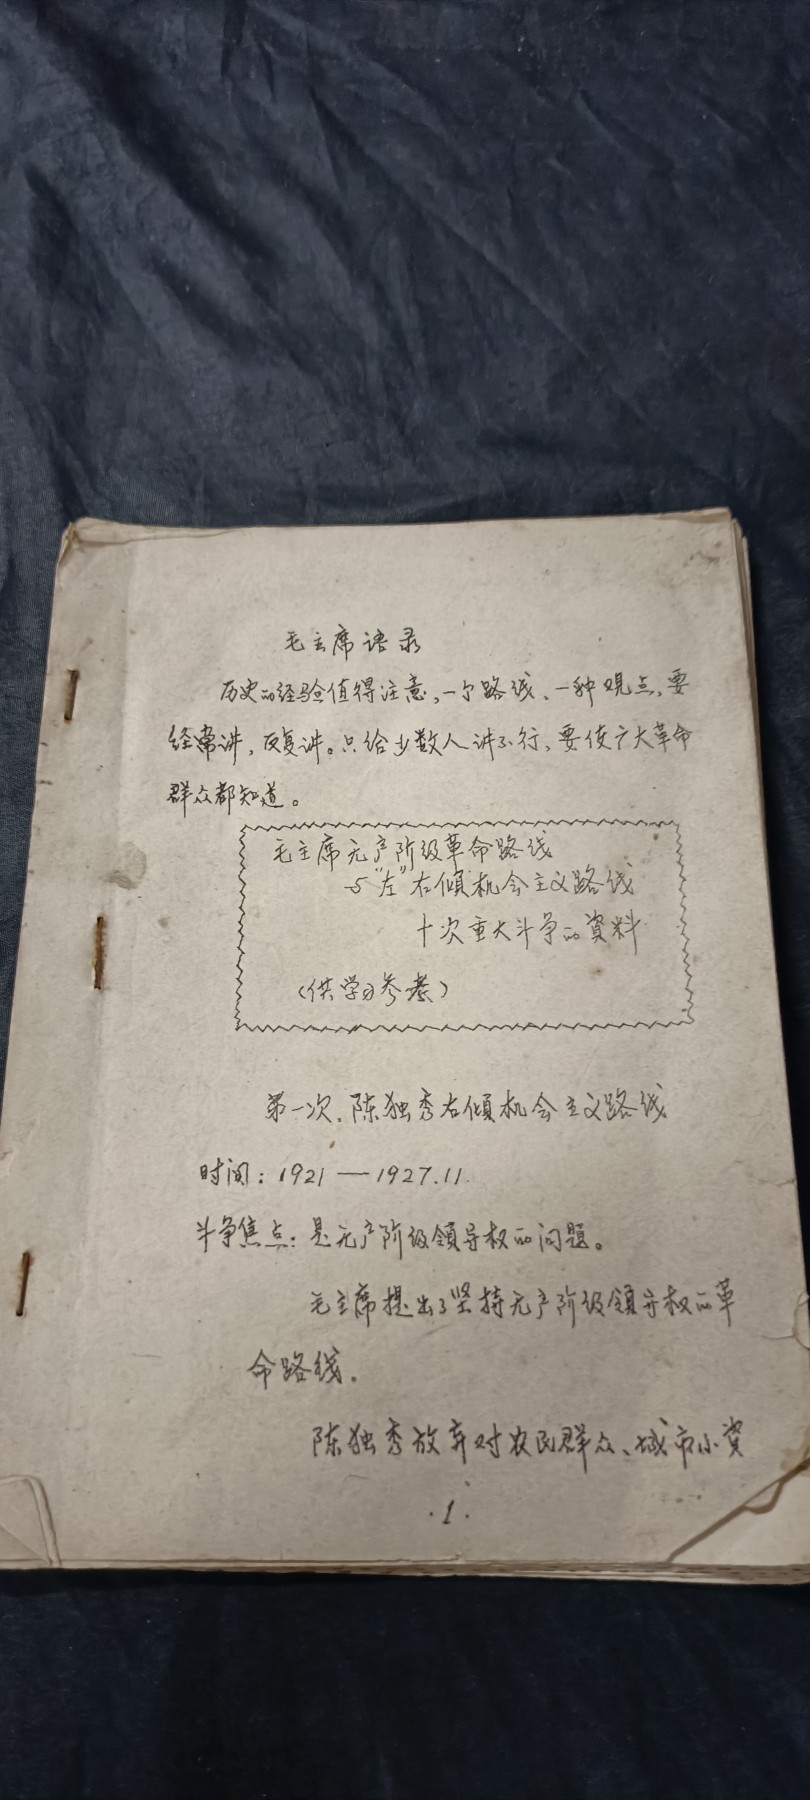 毛主席语录
历史的经验值得注意,一个路线、一种观点,要
经常讲,反复讲。只给少数人讲不行,要使广大革命
群众都知道。
毛主席无产阶级革命路线
与"左"右倾机会主义路线
十次重大斗争的资料
(供学习参考)
第一次.陈独秀右倾机会主义路线
时间:1921—1927.11.
斗争焦点:是无产阶级领导权的问题。
毛主席提出了坚持无产阶级领导权的革
命路线.
陈独秀放弃对农民群众、城市小资
·1·